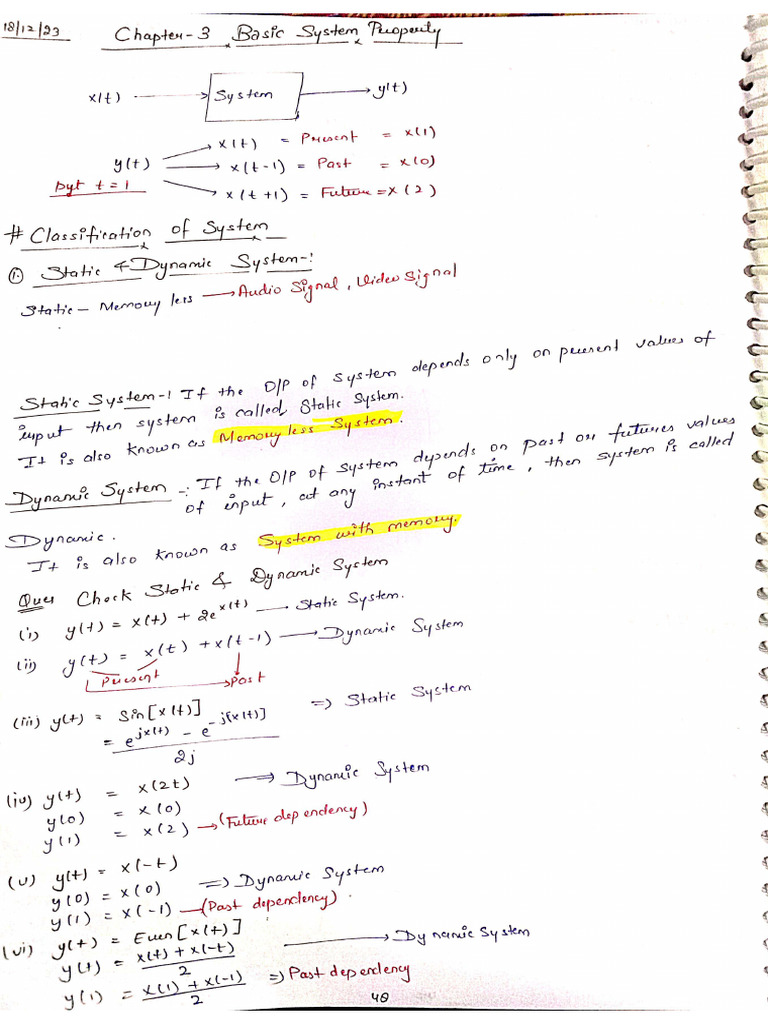 18/12/23
Chapter-3 Basic System Property
x(t) → System → y(t)
y(t) → x(t) = Present = x(1)
→ x(t-1) = Past = x(0)
put t=1 → x(t+1) = Future = x(2)
# Classification of System
(i) Static & Dynamic System-:
Static - Memory less → Audio Signal, Video Signal
Static System-: If the O/P of system depends only on present values of
input then system is called Static System.
It is also known as Memoryless System.
Dynamic System -: If the O/P of system depends on past or futures values
of input, at any instant of time, then system is called
Dynamic.
It is also known as System with memory.
Ques Check Static & Dynamic System
(i) y(t) = x(t) + 2e^x(t) — Static System.
(ii) y(t) = x(t) + x(t-1) → Dynamic System
Present → Past
(iii) y(t) = Sin[x(t)] ⇒ Static System
= e^jx(t) - e^-j[x(t)] / 2j
(iv) y(t) = x(2t) ⇒ Dynamic System
y(0) = x(0)
y(1) = x(2) → (Future dependency)
(v) y(t) = x(-t)
y(0) = x(0) ⇒ Dynamic System
y(1) = x(-1) — (Past dependency).
(vi) y(t) = Even[x(t)]
y(t) = x(t) + x(-t) / 2 → Dynamic System
y(1) = x(1) + x(-1) / 2 ⇒ Past dependency
48